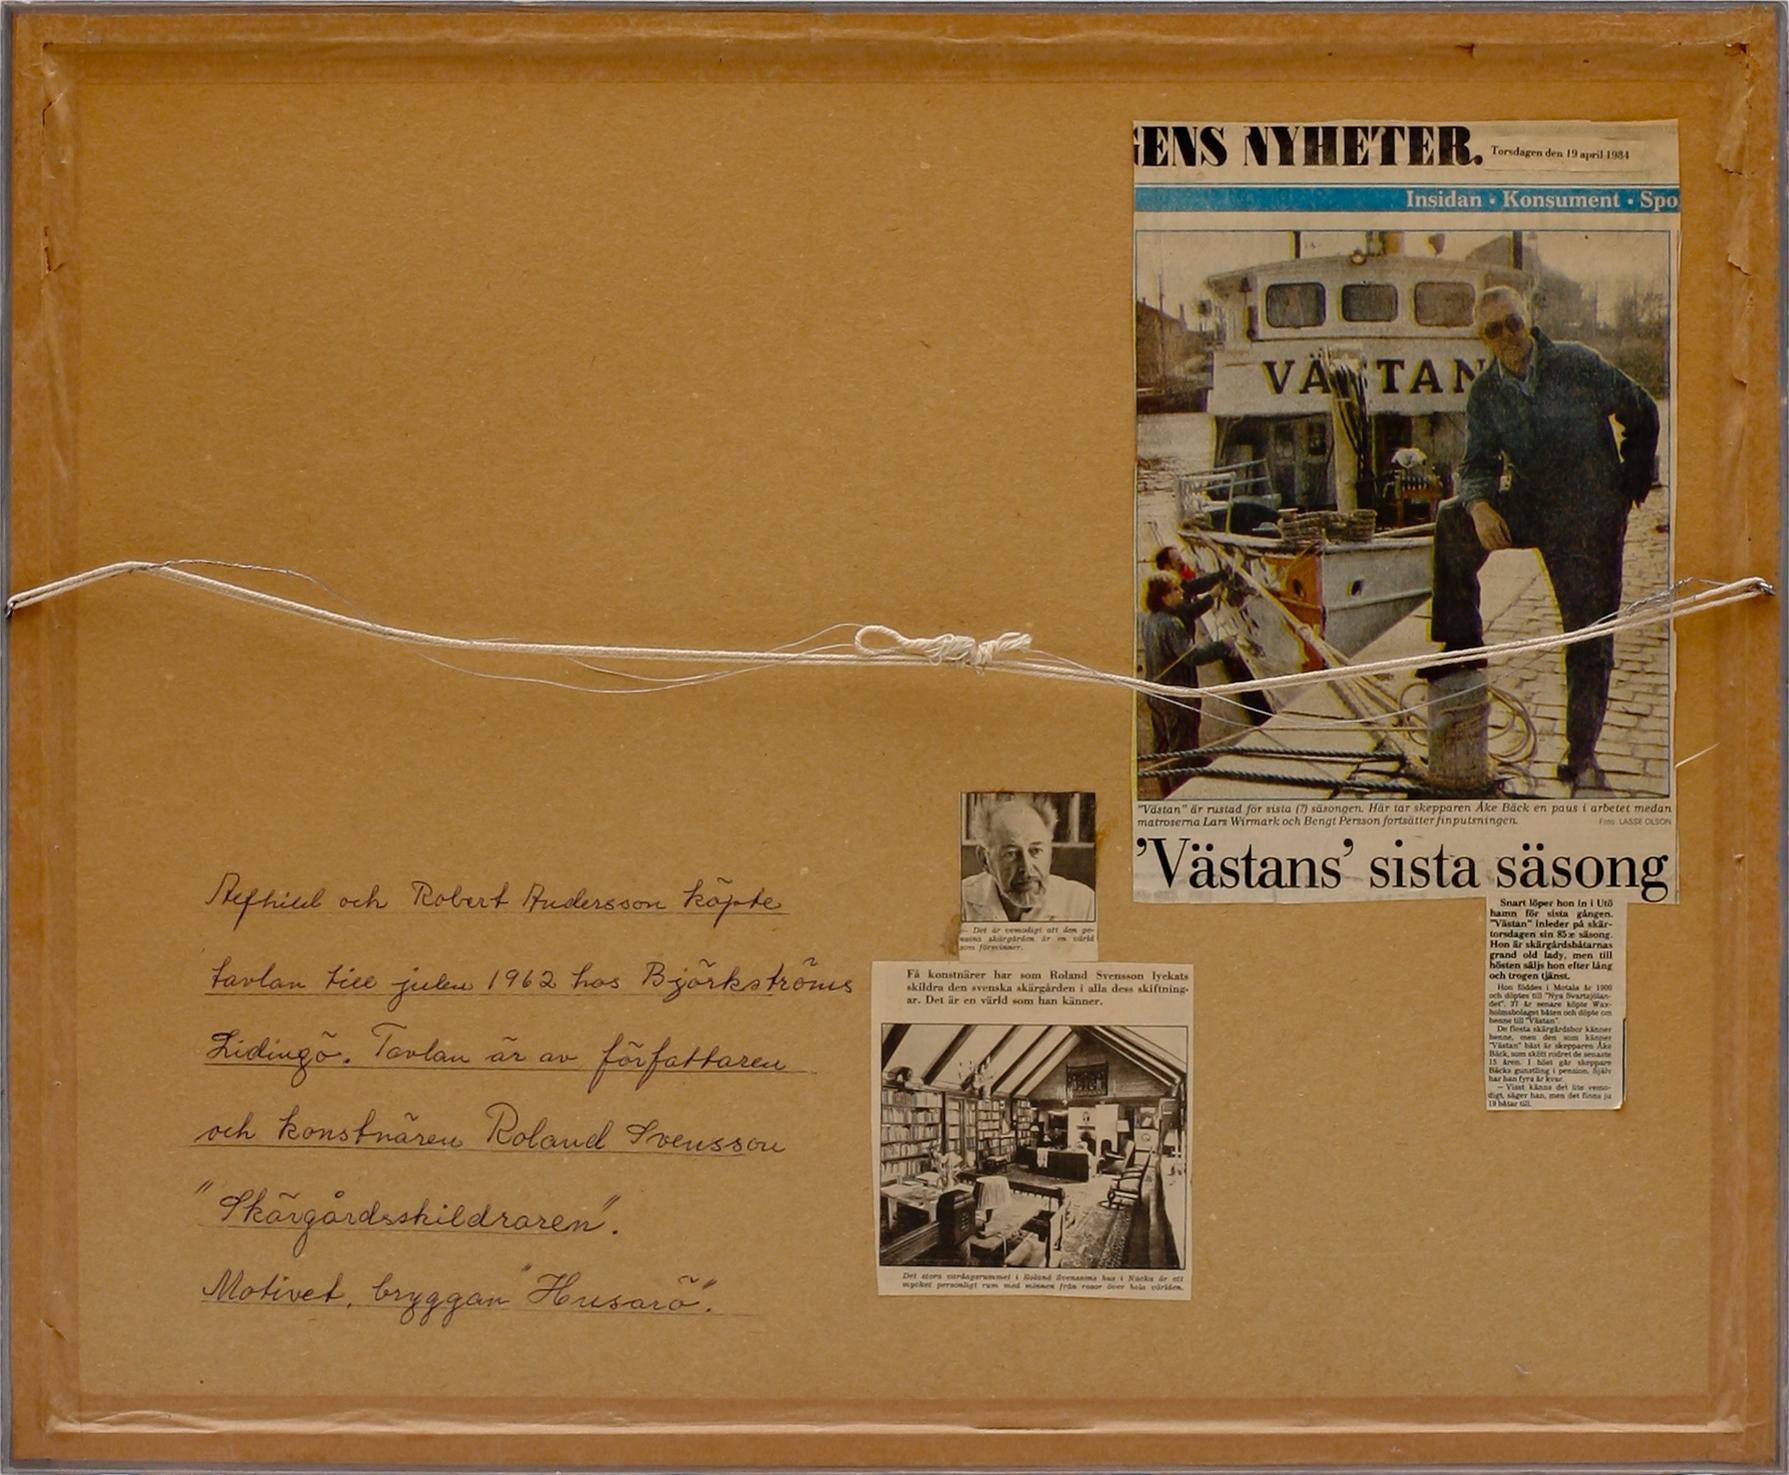 GENS NYHETER. Torsdagen den 19 april 1984
Insidan • Konsument • Spo
VÄSTAN
"Västan" är rustad för sista (?) säsongen. Här tar skepparen Åke Bäck en paus i arbetet medan
matroserna Lars Wirmark och Bengt Persson fortsätter finputsningen. Foto: LASSE OLSON
'Västans' sista säsong
Snart löper hon in i Utö
hamn för sista gången.
"Västan" inleder på skär-
torsdagen sin 85:e säsong.
Hon är skärgårdsbåtarnas
grand old lady, men till
hösten säljs hon efter lång
och trogen tjänst.
Hon föddes i Motala år 1900
och döptes till "Nya Svartsjölan-
det". 37 år senare köpte Wax-
holmsbolaget båten och döpte om
henne till "Västan".
De flesta skärgårdsbor känner
henne, men den som känner
"Västan" bäst är skepparen Åke
Bäck, som skött rodret de senaste
15 åren. I höst går skeppare
Bäcks gunstling i pension. Själv
har han fyra år kvar.
— Visst känns det lite vemo-
digt, säger han, men det finns ju
19 båtar till.
— Det är vemodigt att den ge-
nuina skärgården är en värld
som försvinner.
Få konstnärer har som Roland Svensson lyckats
skildra den svenska skärgården i alla dess skiftning-
ar. Det är en värld som han känner.
Det stora vardagsrummet i Roland Svenssons hus i Nacka är ett
mycket personligt rum med minnen från resor över hela världen.
och Robert Andersson köpte
tavlan till julen 1962 hos Björkströms
Lidingö. Tavlan är av författaren
och konstnären Roland Svensson
"Skärgårdsskildraren".
Motivet, bryggan "Husarö".